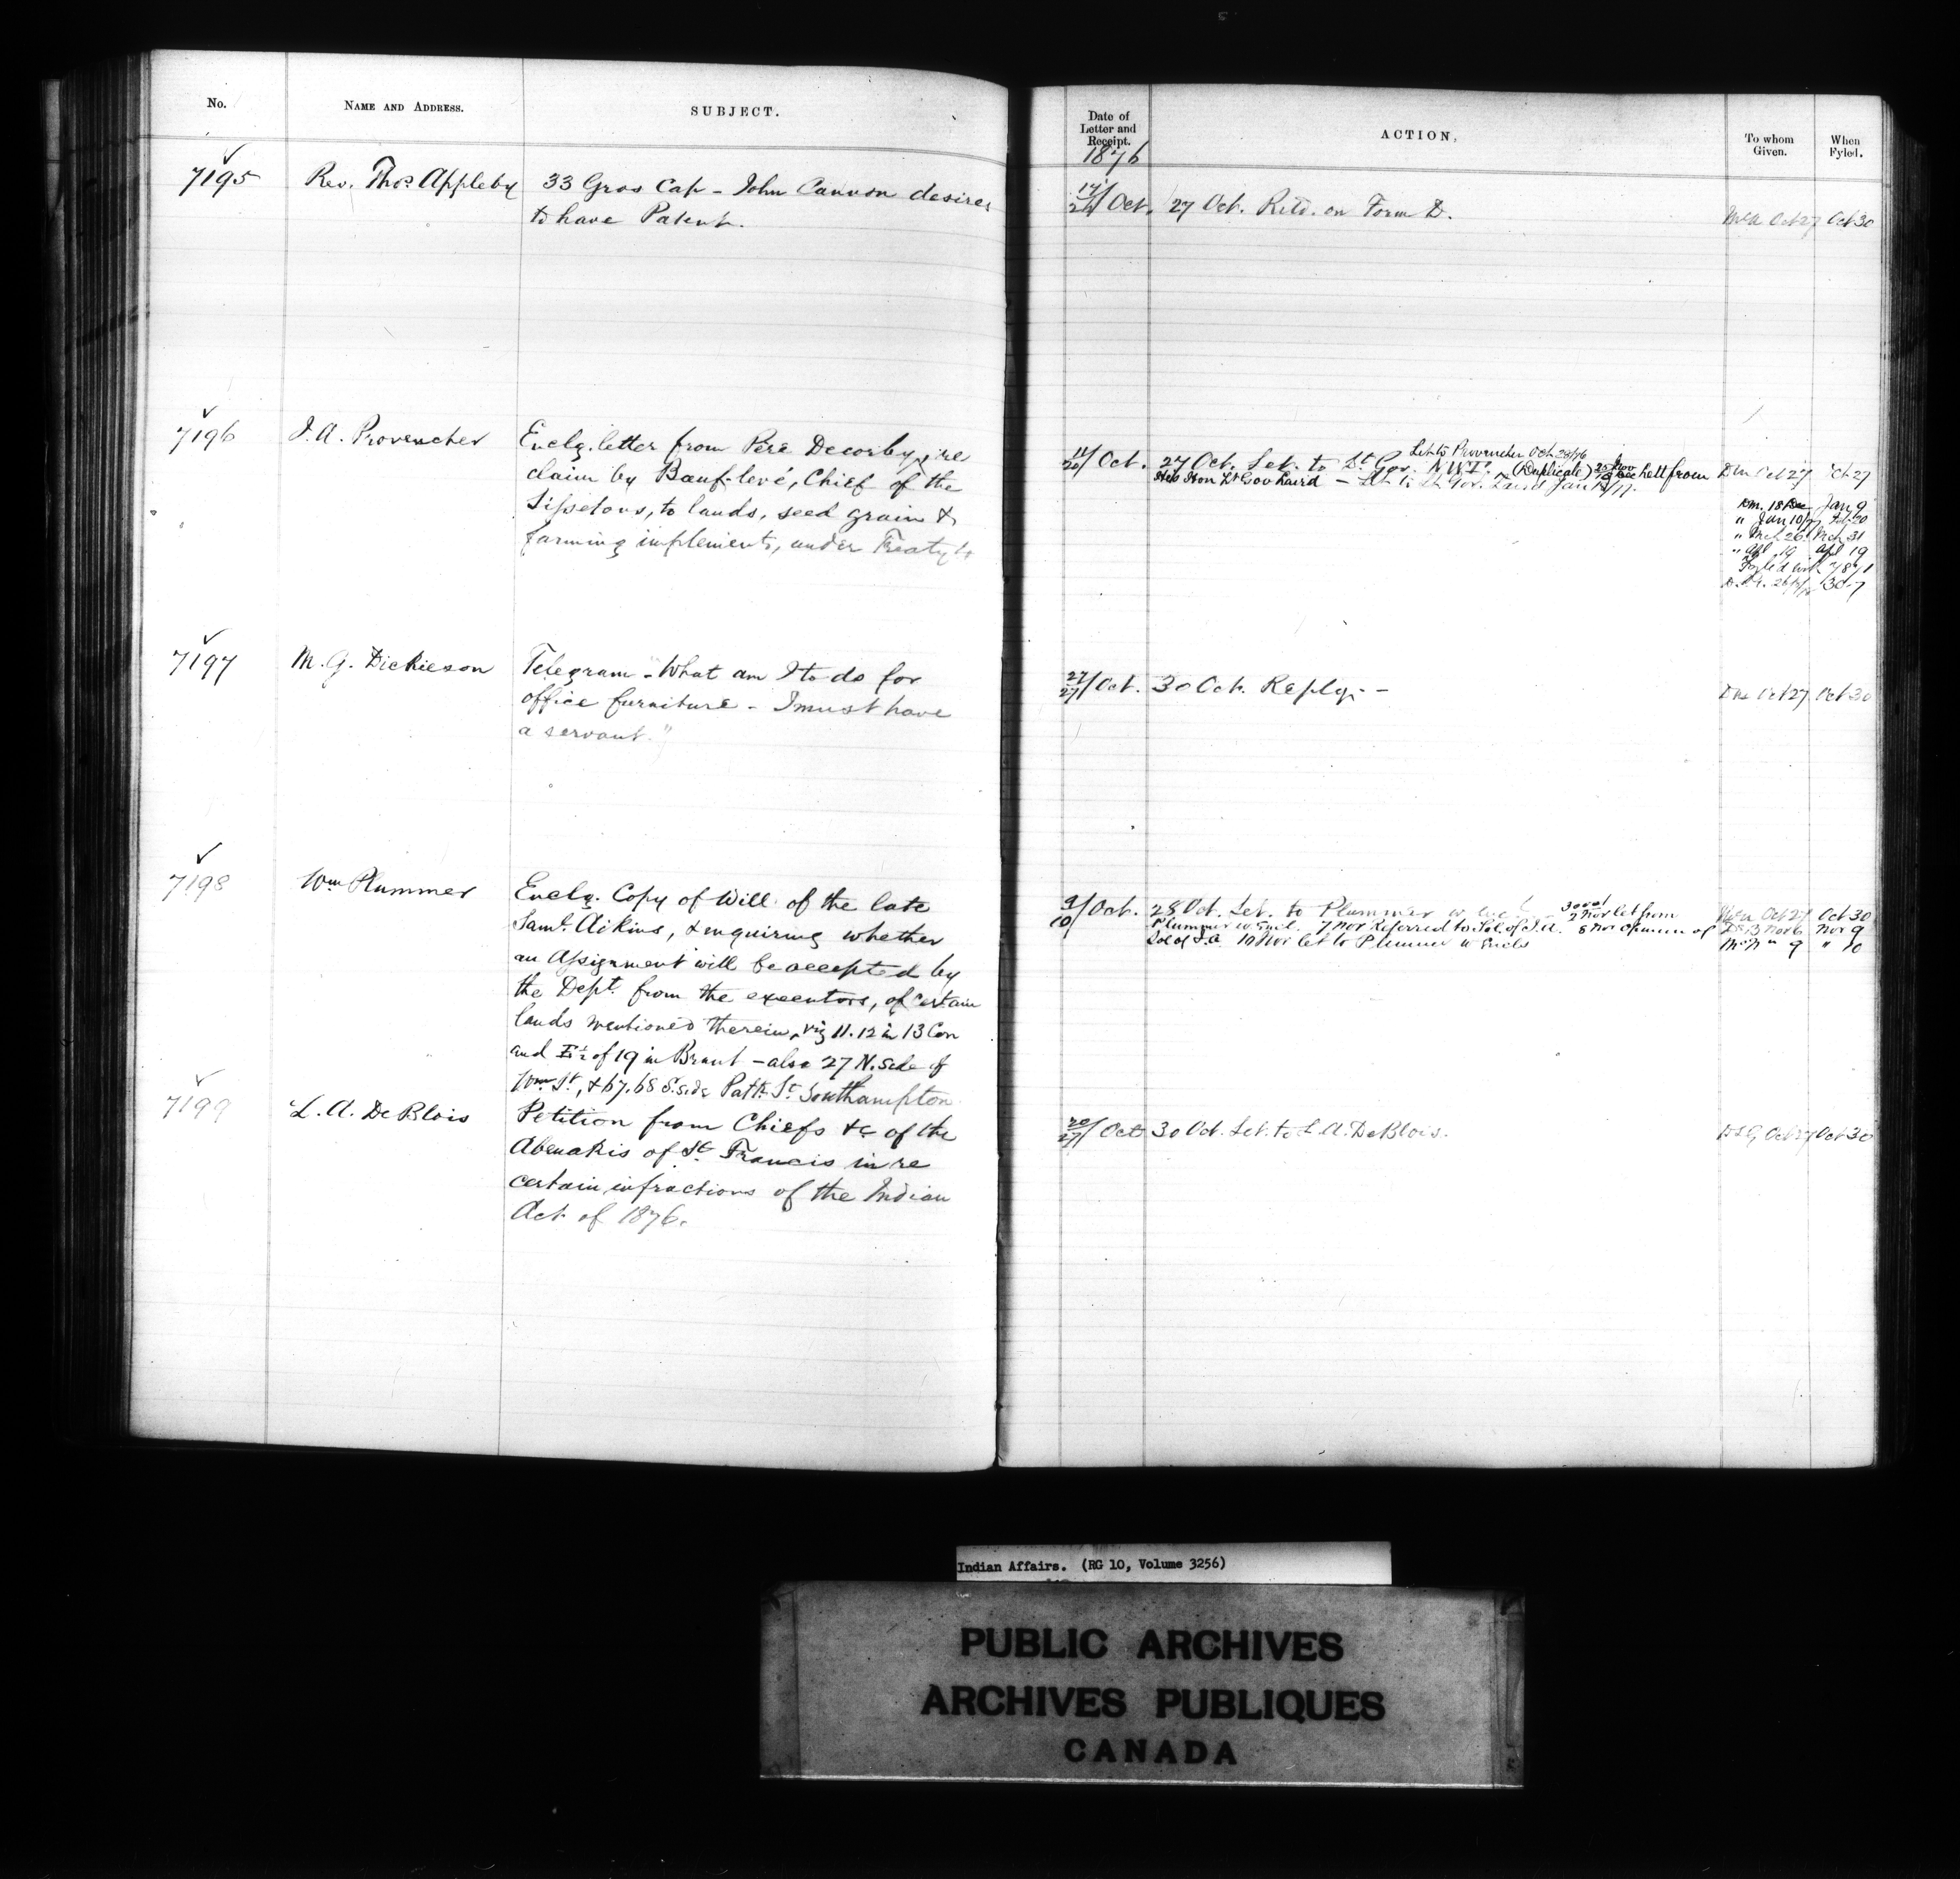 No.
NAME AND ADDRESS.
SUBJECT.
7195
Rev. Thos. Appleby
33 Gros Cap - John Cannon desires
to have Patent.
7196
J. A. Provencher
Enclg. letter from Père Decorby, re
claim by Bauf-levé, Chief of the
Sissetons, to lands, seed grain &
farming implements, under Treaty 4
7197
M. G. Dickieson
Telegram - "What am I to do for
office furniture - I must have
a servant."
7198
Wm Plummer
Enclg. Copy of Will of the late
Saml. Aikins, & enquiring whether
an Assignment will be accepted by
the Dept. from the executors, of certain
lands mentioned therein, viz 11.12 in 13 Con
and E½ of 19 in Brant - also 27 N. side of
Wm St, & 67.68 S. side Patk St Southampton
7199
L. A. DeBlois
Petition from Chiefs &c of the
Abenakis of St. Francis in re
certain infractions of the Indian
Act of 1876.
Date of
Letter and
Receipt.
1876
ACTION.
To whom
Given.
When
Fyled.
Oct. 27 Oct. Retd. on Form D.
Oct 27 Oct 30
Let to Provencher Oct 28/76
11/20 Oct. 27 Oct. Let. to Lt Gov. N.W.T. (Duplicate) let from
His Hon Lt Gov Laird - Let to Lt. Gov. Laird Jan
Oct 27
Dm. 18 Dec Jan 9
" Jan 10/77 Feb 20
" Mch 26 Mch 31
" Apl 19 Apl 19
Fyled with 7871
30-7
27/27 Oct. 30 Oct. Replg. -
Oct 27 Oct 30
9/10 Oct. 28 Oct. Let. to Plummer w. 2 Nov let from
Plummer w. Encl. 7 Nov Referred to Sol. of I.A. 8 Nov opinion of
Sol of I.A 10 Nov let to Plummer w Encls
Oct 27 Oct 30
Nov 6 Nov 9
" 9 " 10
20/27 Oct 30 Oct. Let. to L. A. DeBlois.
Oct 27 Oct 30
Indian Affairs. (RG 10, Volume 3256)
PUBLIC ARCHIVES
ARCHIVES PUBLIQUES
CANADA